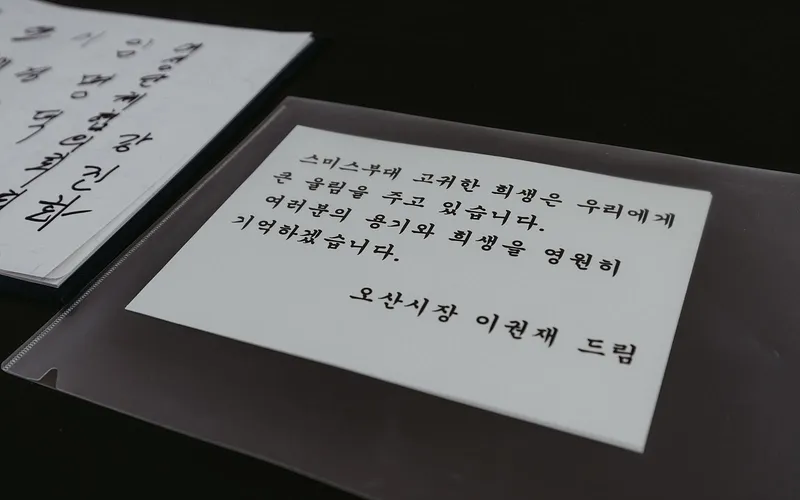 스미스부대 고귀한 희생은 우리에게
큰 울림을 주고 있습니다.
여러분의 용기와 희생을 영원히
기억하겠습니다.
오산시장 이권재 드림
여성단체협의회
강진화
임명
시